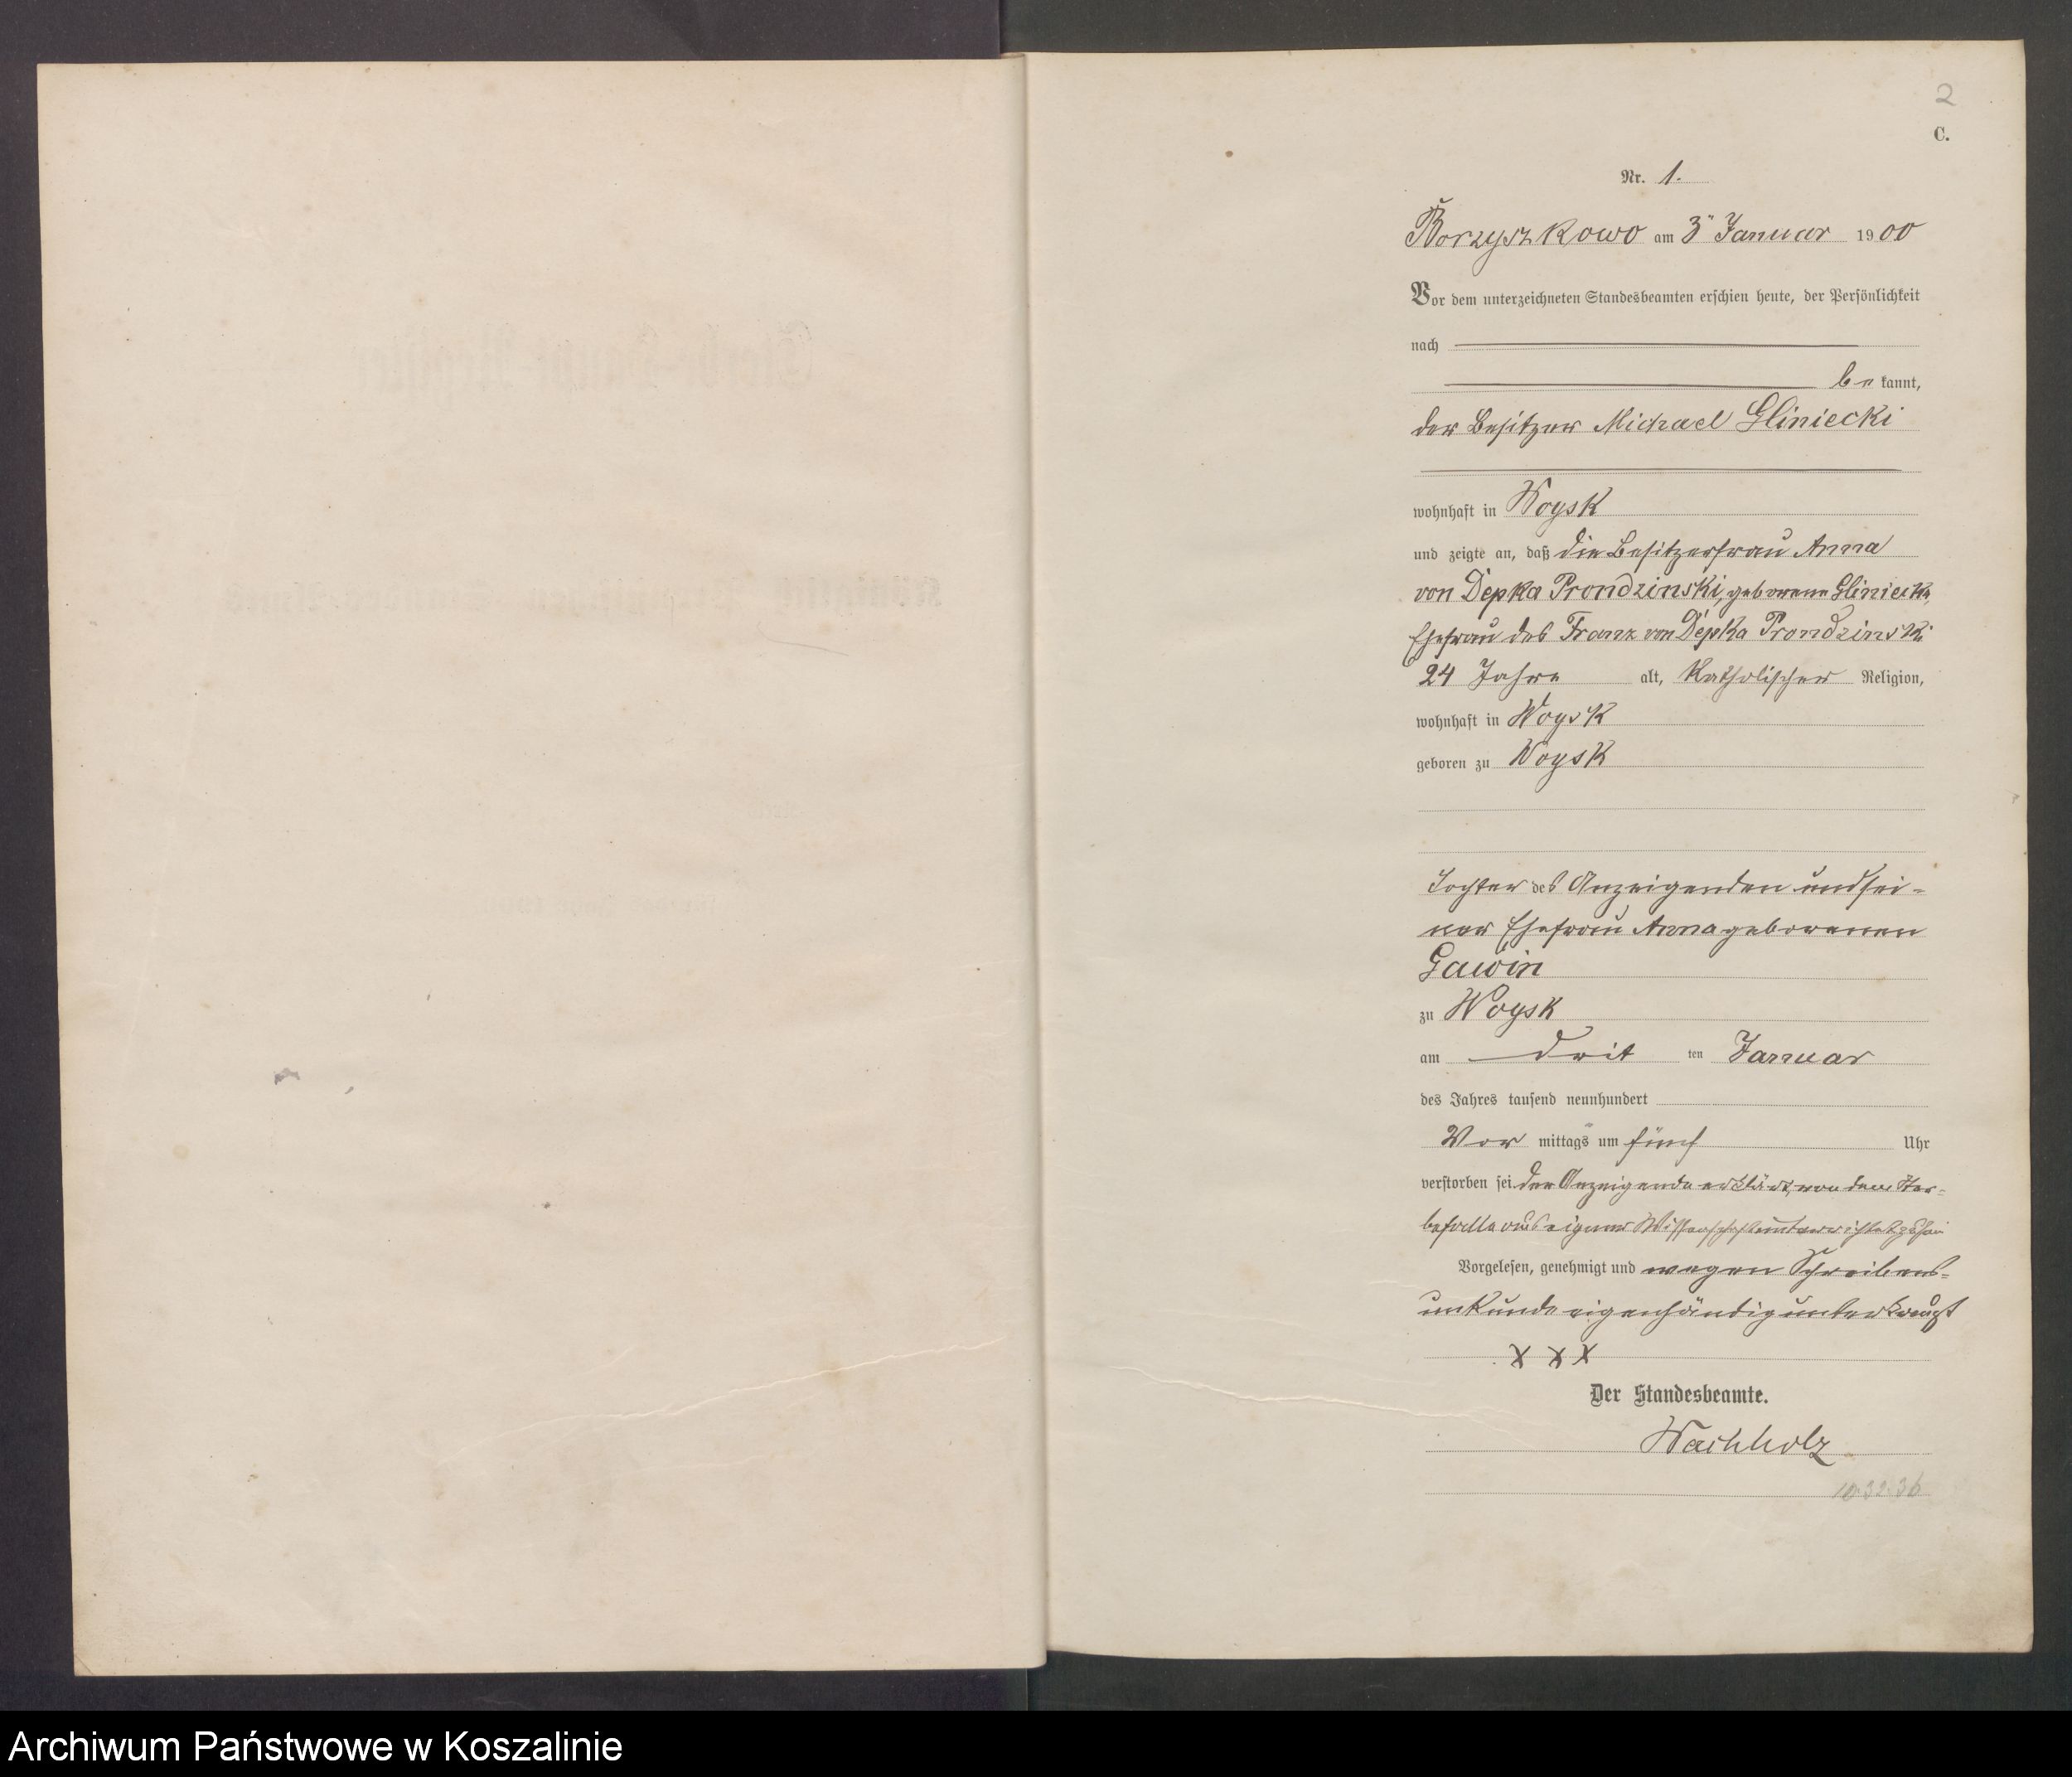 2
C.
Nr. 1.
Borzyszkowo am 3ten Januar 1900
Vor dem unterzeichneten Standesbeamten erschien heute, der Persönlichkeit
nach
be kannt,
der Besitzer Michael Gliniecki
wohnhaft in Woysk
und zeigte an, daß die Besitzerfrau Anna
von Depka Prondzinski, geborene Gliniecki,
Ehefrau des Franz von Depka Prondzinski
24 Jahre alt, katholischer Religion,
wohnhaft in Woysk
geboren zu Woysk
Tochter des Anzeigenden und sei-
ner Ehefrau Anna geborenen
Gawin
zu Woysk
am drit ten Januar
des Jahres tausend neunhundert
Vor mittags um fünf Uhr
verstorben sei. Der Anzeigende erklärt, von dem Ster-
befalle aus eigener Wissenschaft unterrichtet zu sein
Vorgelesen, genehmigt und wegen Schreibens-
unkunde eigenhändig unterkreuzt
X X X
Der Standesbeamte.
Wachholz
10.32.36
Archiwum Państwowe w Koszalinie